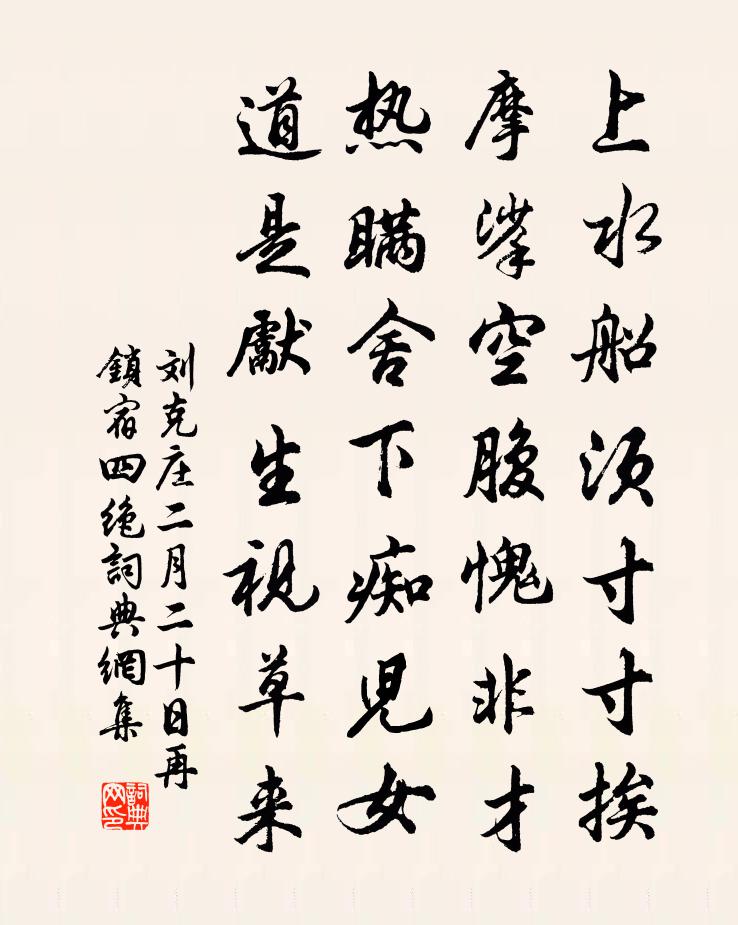 上水船须寸寸挨
摩挲空腹愧非才
热瞒舍下痴兒女
道是獻生視草来
刘克庄二月二十日再
鎖宿四绝詞典網集
詞典
网印